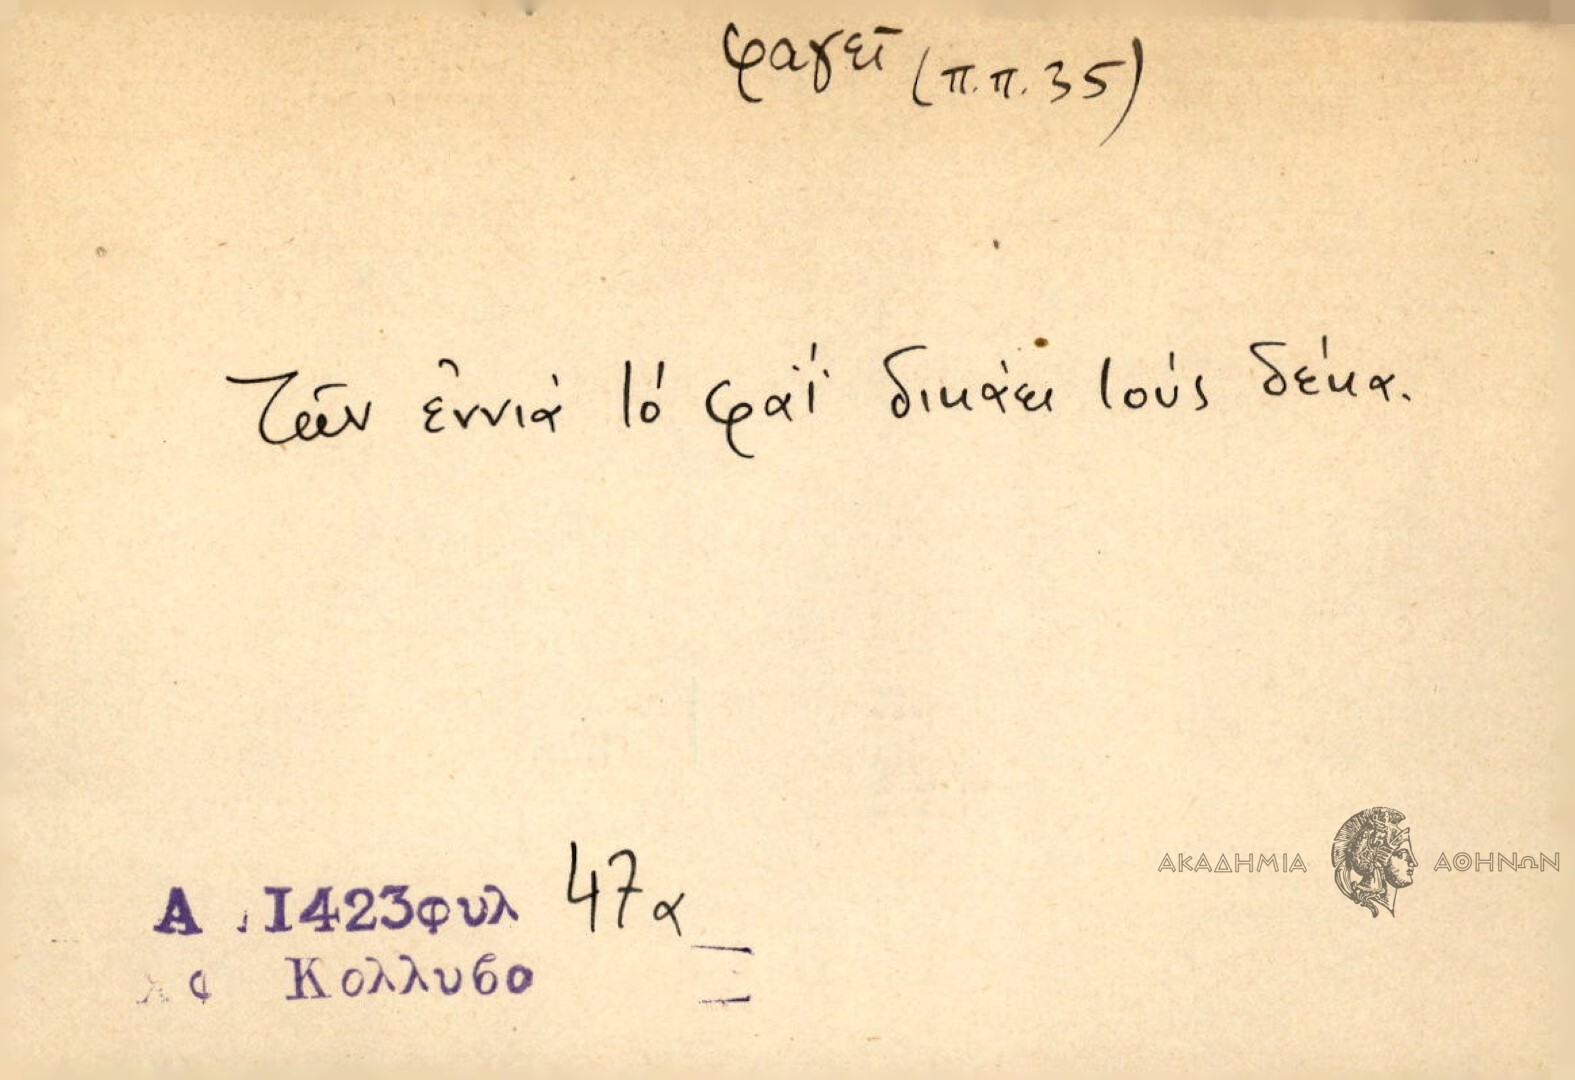 φαγεῖ (π.π. 35)
Τῶν ἐννιά τό φαΐ δικάει τούς δέκα.
Α. 1423 φυλ 47α
Κολλυβο
ΑΚΑΔΗΜΙΑ ΑΘΗΝΩΝ